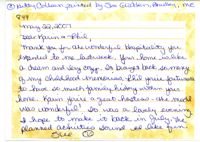 Kitty Colburn, printed by Jon Goodson, Bradley, ME
5/22/2007
Dear Karin & Phil,
Thank you for the wonderful hospitality you
extended to me last week. Your home is like
a dream and very cozy. It brought back so many
of my childhood memories. Phil you're fortunate
to have so much family history within your
home. Karin you're a great hostess - the meal
was wonderful! It was a lovely evening
I hope to make it back in July. The
planned activities sound like fun!